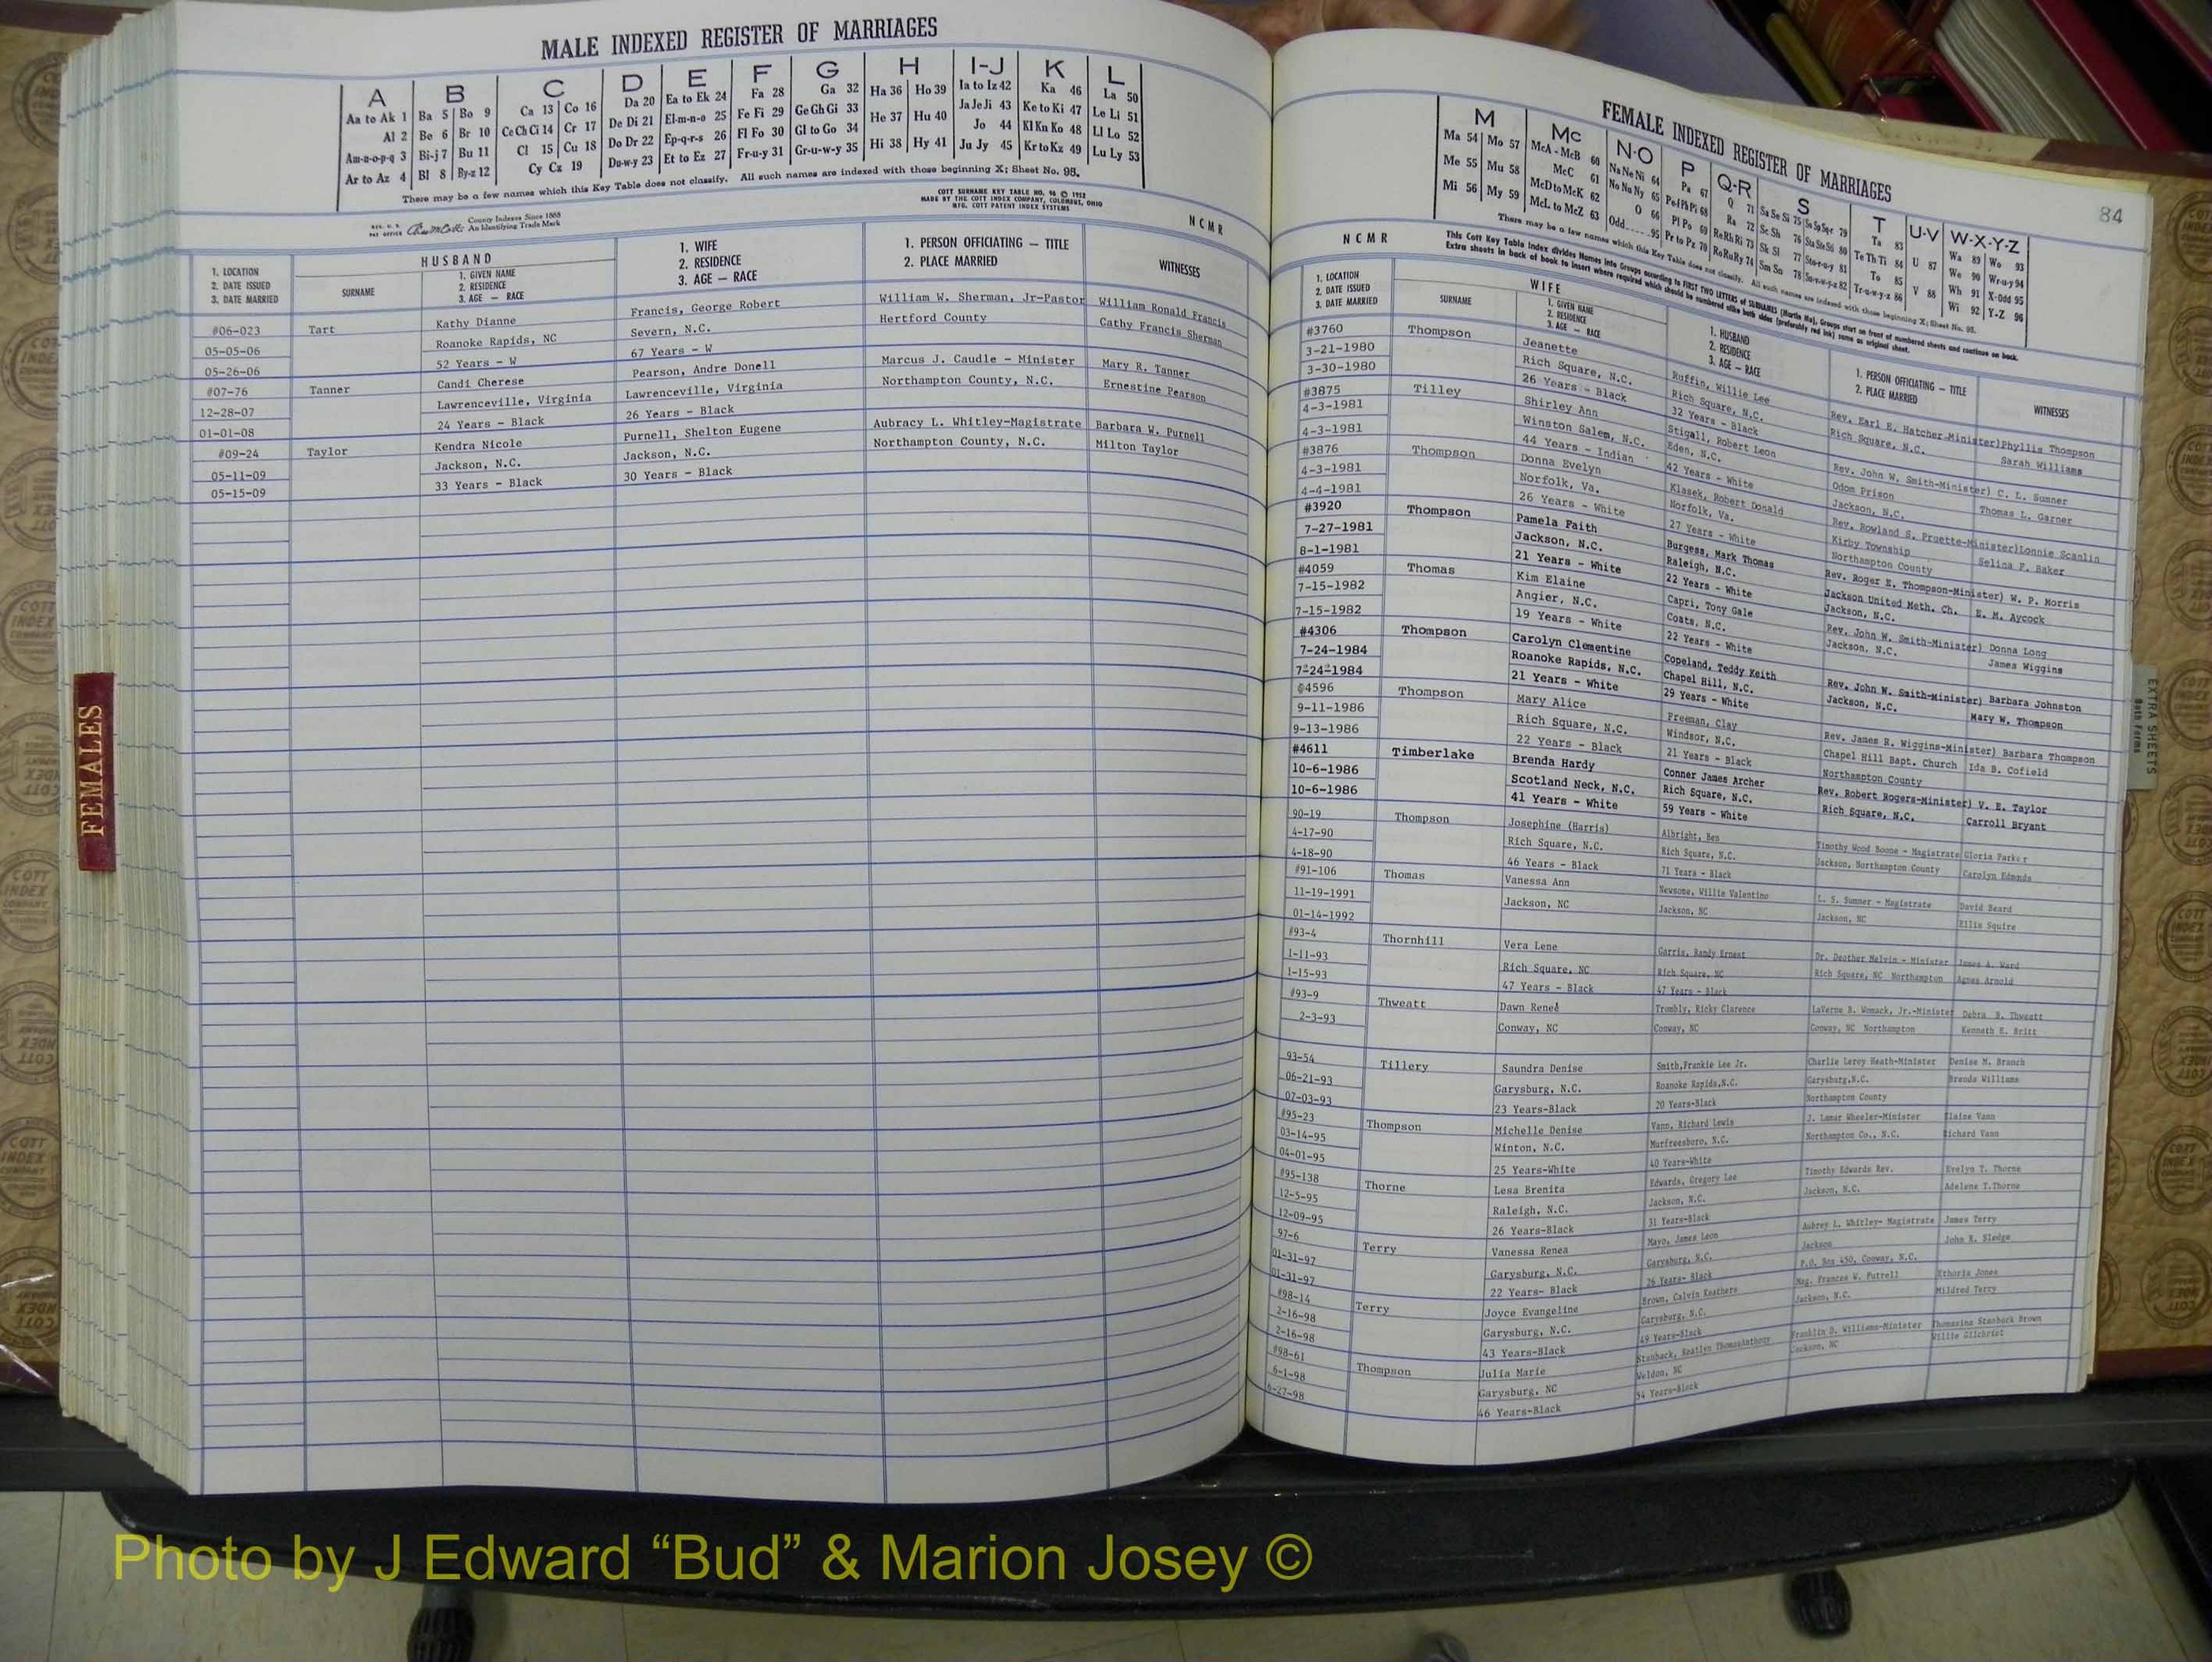 MALE INDEXED REGISTER OF MARRIAGES
A B C D E F G H I-J K L
Aa to Ak 1 Ba 5 Bo 9 Ca 13 Co 16 Da 20 Ea to Ek 24 Fa 28 Ga 32 Ha 36 Ho 39 Ia to Iz 42 Ka 46 La 50
Al 2 Be 6 Br 10 Ce Ch Ci 14 Cr 17 De Di 21 El-m-n-o 25 Fe Fi 29 Ge Gh Gi 33 He 37 Hu 40 Ja Je Ji 43 Ke to Ki 47 Le Li 51
Am-n-o-p-q 3 Bi-j 7 Bu 11 Cl 15 Cu 18 Do Dr 22 Ep-q-r-s 26 Fl Fo 30 Gl to Go 34 Hi 38 Hy 41 Jo 44 Kl Kn Ko 48 Ll Lo 52
Ar to Az 4 Bl 8 By-z 12 Cy Cz 19 Du-w-y 23 Et to Ez 27 Fr-u-y 31 Gr-u-w-y 35 Ju Jy 45 Kr to Kz 49 Lu Ly 53
There may be a few names which this Key Table does not classify. All such names are indexed with those beginning X; Sheet No. 95.
COTT SURNAME KEY TABLE NO. 96 © 1952
MADE BY THE COTT INDEX COMPANY, COLUMBUS, OHIO
MFG. COTT PATENT INDEX SYSTEMS
REG. U. S. PAT OFFICE
County Indexes Since 1888
An Identifying Trade Mark
NCMR
1. LOCATION
2. DATE ISSUED
3. DATE MARRIED
HUSBAND
SURNAME
1. GIVEN NAME
2. RESIDENCE
3. AGE — RACE
1. WIFE
2. RESIDENCE
3. AGE — RACE
1. PERSON OFFICIATING — TITLE
2. PLACE MARRIED
WITNESSES
#06-023 Tart Kathy Dianne Francis, George Robert William W. Sherman, Jr-Pastor William Ronald Francis
05-05-06 Roanoke Rapids, NC Severn, N.C. Hertford County Cathy Francis Sherman
05-26-06 52 Years - W 67 Years - W
#07-76 Tanner Candi Cherese Pearson, Andre Donell Marcus J. Caudle - Minister Mary R. Tanner
12-28-07 Lawrenceville, Virginia Lawrenceville, Virginia Northampton County, N.C. Ernestine Pearson
01-01-08 24 Years - Black 26 Years - Black
#09-24 Taylor Kendra Nicole Purnell, Shelton Eugene Aubracy L. Whitley-Magistrate Barbara W. Purnell
05-11-09 Jackson, N.C. Jackson, N.C. Northampton County, N.C. Milton Taylor
05-15-09 33 Years - Black 30 Years - Black
FEMALES
FEMALE INDEXED REGISTER OF MARRIAGES
84
M Mc N-O P Q-R S T U-V W-X-Y-Z
Ma 54 Mo 57 McA - McB 60 Na Ne Ni 64 Pa 67 Q 71 Sa Se Si 75 Sn Sp Sq-r 79 Ta 83 Wa 89 Wo 93
Me 55 Mu 58 McC 61 No Nu Ny 65 Pe-f-Ph Pi 68 Ra 72 Sc Sh 76 Sta Ste Sti 80 Te Th Ti 84 U 87 We 90 Wr-u-y 94
Mi 56 My 59 McD to McK 62 O 66 Pl Po 69 Re Rh Ri 73 Sk Sl 77 Sto-r-u-y 81 To 85 Wh 91 X-Odd 95
McL to McZ 63 Odd 95 Pr to Pz 70 Ro Ru Ry 74 Sm Sn 78 Su-v-w-y-z 82 Tr-u-w-y-z 86 V 88 Wi 92 Y-Z 96
There may be a few names which this Key Table does not classify. All such names are indexed with those beginning X; Sheet No. 95.
This Cott Key Table Index divides Names into Groups according to FIRST TWO LETTERS of SURNAMES (Martin Ma), Groups start on front of numbered sheets and continue on back.
Extra sheets in back of book to insert where required which should be numbered alike both sides (preferably red ink) same as original sheet.
NCMR
1. LOCATION
2. DATE ISSUED
3. DATE MARRIED
WIFE
SURNAME
1. GIVEN NAME
2. RESIDENCE
3. AGE — RACE
1. HUSBAND
2. RESIDENCE
3. AGE — RACE
1. PERSON OFFICIATING — TITLE
2. PLACE MARRIED
WITNESSES
#3760 Thompson Jeanette Ruffin, Willie Lee Rev. Earl E. Hatcher-Minister) Phyllis Thompson
3-21-1980 Rich Square, N.C. Rich Square, N.C. Rich Square, N.C. Sarah Williams
3-30-1980 26 Years - Black 32 Years - Black
#3875 Tilley Shirley Ann Stigall, Robert Leon Rev. John W. Smith-Minister) C. L. Sumner
4-3-1981 Winston Salem, N.C. Eden, N.C. Odom Prison Thomas L. Garner
4-3-1981 44 Years - Indian 42 Years - White Jackson, N.C.
#3876 Thompson Donna Evelyn Klasek, Robert Donald Rev. Rowland S. Pruette-Minister) Lonnie Scanlin
4-3-1981 Norfolk, Va. Norfolk, Va. Kirby Township Selina F. Baker
4-4-1981 26 Years - White 27 Years - White Northampton County
#3920 Thompson Pamela Faith Burgess, Mark Thomas Rev. Roger E. Thompson-Minister) W. P. Morris
7-27-1981 Jackson, N.C. Raleigh, N.C. Jackson United Meth. Ch. E. M. Aycock
8-1-1981 21 Years - White 22 Years - White Jackson, N.C.
#4059 Thomas Kim Elaine Capri, Tony Gale Rev. John W. Smith-Minister) Donna Long
7-15-1982 Angier, N.C. Coats, N.C. Jackson, N.C. James Wiggins
7-15-1982 19 Years - White 22 Years - White
#4306 Thompson Carolyn Clementine Copeland, Teddy Keith Rev. John W. Smith-Minister) Barbara Johnston
7-24-1984 Roanoke Rapids, N.C. Chapel Hill, N.C. Jackson, N.C. Mary W. Thompson
7-24-1984 21 Years - White 29 Years - White
@4596 Thompson Mary Alice Freeman, Clay Rev. James R. Wiggins-Minister) Barbara Thompson
9-11-1986 Rich Square, N.C. Windsor, N.C. Chapel Hill Bapt. Church Ida B. Cofield
9-13-1986 22 Years - Black 21 Years - Black Northampton County
#4611 Timberlake Brenda Hardy Conner James Archer Rev. Robert Rogers-Minister) V. E. Taylor
10-6-1986 Scotland Neck, N.C. Rich Square, N.C. Rich Square, N.C. Carroll Bryant
10-6-1986 41 Years - White 59 Years - White
90-19 Thompson Josephine (Harris) Albright, Ben Timothy Wood Boone - Magistrate Gloria Parker
4-17-90 Rich Square, N.C. Rich Square, N.C. Jackson, Northampton County Carolyn Edmonds
4-18-90 46 Years - Black 71 Years - Black
#91-106 Thomas Vanessa Ann Newsome, Willie Valentino L. S. Sumner - Magistrate David Beard
11-19-1991 Jackson, NC Jackson, NC Jackson, NC Ellis Squire
01-14-1992
#93-4 Thornhill Vera Lene Garris, Randy Ernest Dr. Deother Melvin - Minister James A. Ward
1-11-93 Rich Square, NC Rich Square, NC Rich Square, NC Northampton Agnes Arnold
1-15-93 47 Years - Black 47 Years - Black
#93-9 Thweatt Dawn Reneé Trombly, Ricky Clarence LaVerne B. Womack, Jr.-Minister Debra B. Thweatt
2-3-93 Conway, NC Conway, NC Conway, NC Northampton Kenneth E. Britt
93-54 Tillery Saundra Denise Smith,Frankie Lee Jr. Charlie Leroy Heath-Minister Denise M. Branch
06-21-93 Garysburg, N.C. Roanoke Rapids,N.C. Garysburg,N.C. Brenda Williams
07-03-93 23 Years-Black 20 Years-Black Northampton County
#95-23 Thompson Michelle Denise Vann, Richard Lewis J. Lamar Wheeler-Minister Elaine Vann
03-14-95 Winton, N.C. Murfreesboro, N.C. Northampton Co., N.C. Richard Vann
04-01-95 25 Years-White 40 Years-White
#95-138 Thorne Lesa Brenita Edwards, Gregory Lee Timothy Edwards Rev. Evelyn T. Thorne
12-5-95 Raleigh, N.C. Jackson, N.C. Jackson, N.C. Adelene T.Thorne
12-09-95 26 Years-Black 31 Years-Black
97-6 Terry Vanessa Renea Mayo, James Leon Aubrey L. Whitley- Magistrate James Terry
01-31-97 Garysburg, N.C. Garysburg, N.C. Jackson John R. Sledge
01-31-97 22 Years- Black 26 Years- Black P.O. Box 450, Conway, N.C.
#98-14 Terry Joyce Evangeline Brown, Calvin Keathers Mag. Frances W. Futrell Ethoria Jones
2-16-98 Garysburg, N.C. Garysburg, N.C. Jackson, N.C. Mildred Terry
2-16-98 43 Years-Black 49 Years-Black
#98-61 Thompson Julia Marie Stanback, ThomasAnthony Franklin D. Williams-Minister Thomasina Stanback Brown
6-1-98 Garysburg, NC Weldon, NC Jackson, NC Willie Gilchrist
6-27-98 46 Years-Black 54 Years-Black
EXTRA SHEETS
Both Forms
Photo by J Edward “Bud” & Marion Josey ©